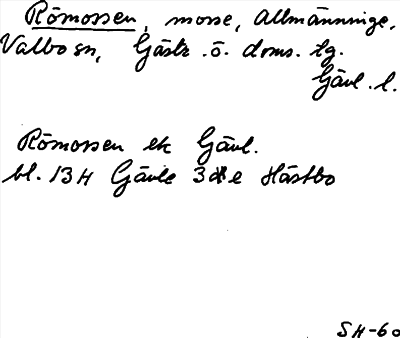 Römossen, mosse, Allmänninge,
Valbo sn, Gästr. ö. doms. tg.
Gävl. l.
Römossen ek Gävl.
bl. 13 H Gävle 3 d e Hästbo
SH-60